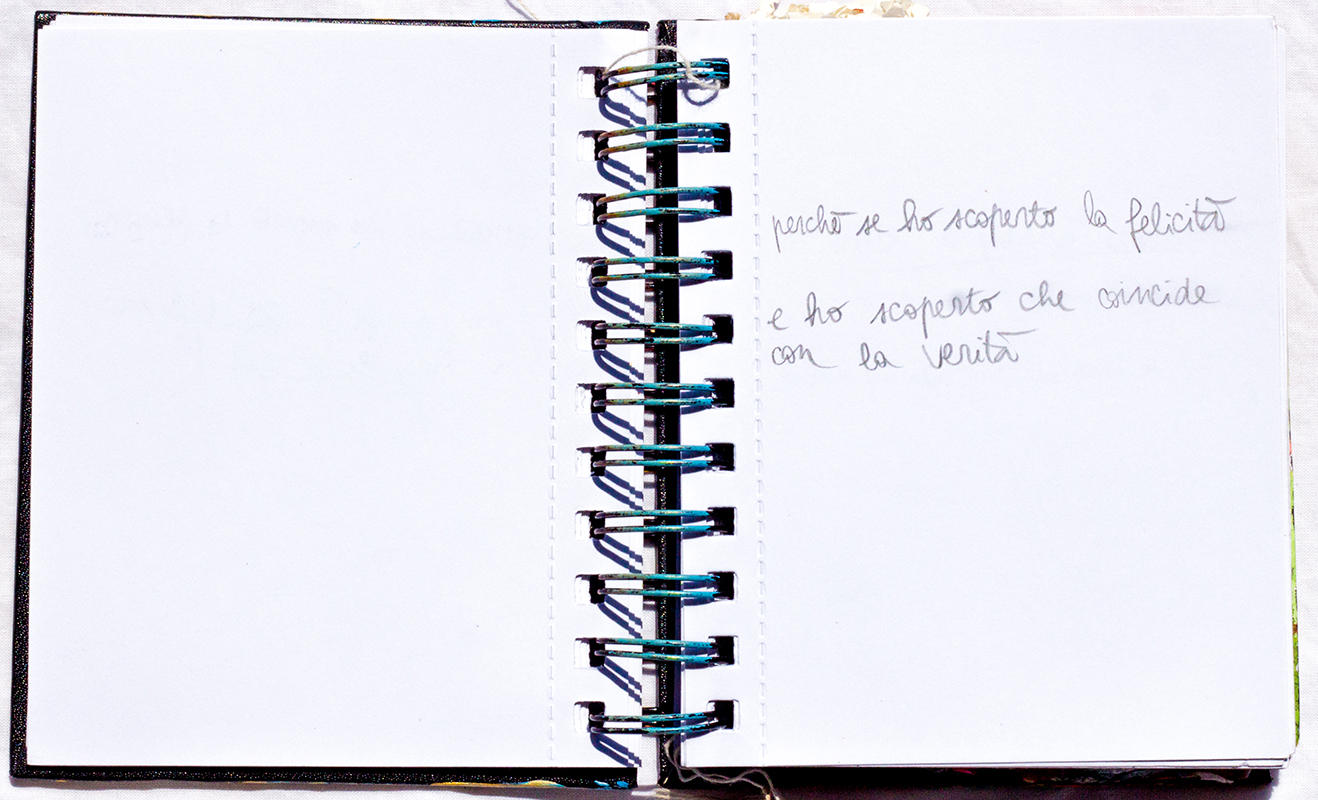 perchè se ho scoperto la felicità
e ho scoperto che coincide
con la verità